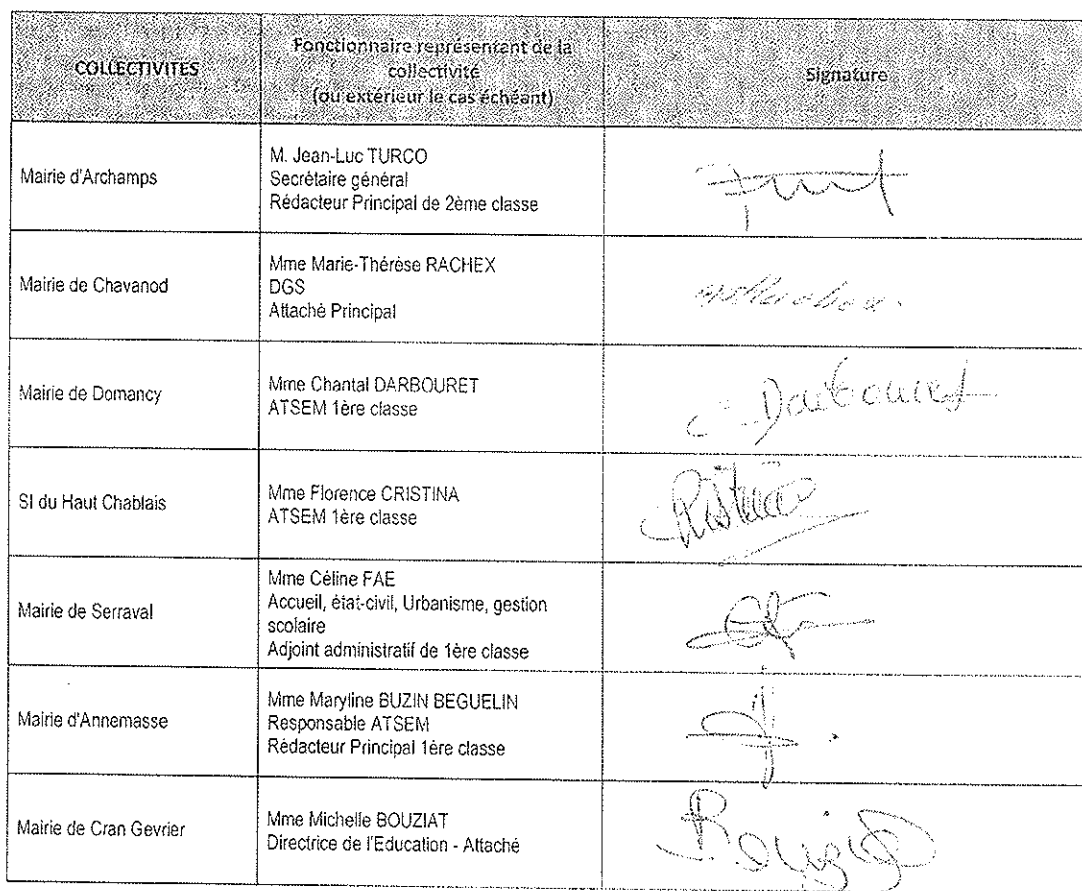 COLLECTIVITES
Fonctionnaire représentant de la
collectivité
(ou extérieur le cas échéant)
Signature
Mairie d'Archamps
M. Jean-Luc TURCO
Secrétaire général
Rédacteur Principal de 2ème classe
Mairie de Chavanod
Mme Marie-Thérèse RACHEX
DGS
Attaché Principal
Mairie de Domancy
Mme Chantal DARBOURET
ATSEM 1ère classe
C. Darbouret
SI du Haut Chablais
Mme Florence CRISTINA
ATSEM 1ère classe
Cristina
Mairie de Serraval
Mme Céline FAE
Accueil, état-civil, Urbanisme, gestion
scolaire
Adjoint administratif de 1ère classe
Mairie d'Annemasse
Mme Maryline BUZIN BEGUELIN
Responsable ATSEM
Rédacteur Principal 1ère classe
Mairie de Cran Gevrier
Mme Michelle BOUZIAT
Directrice de l'Education - Attaché